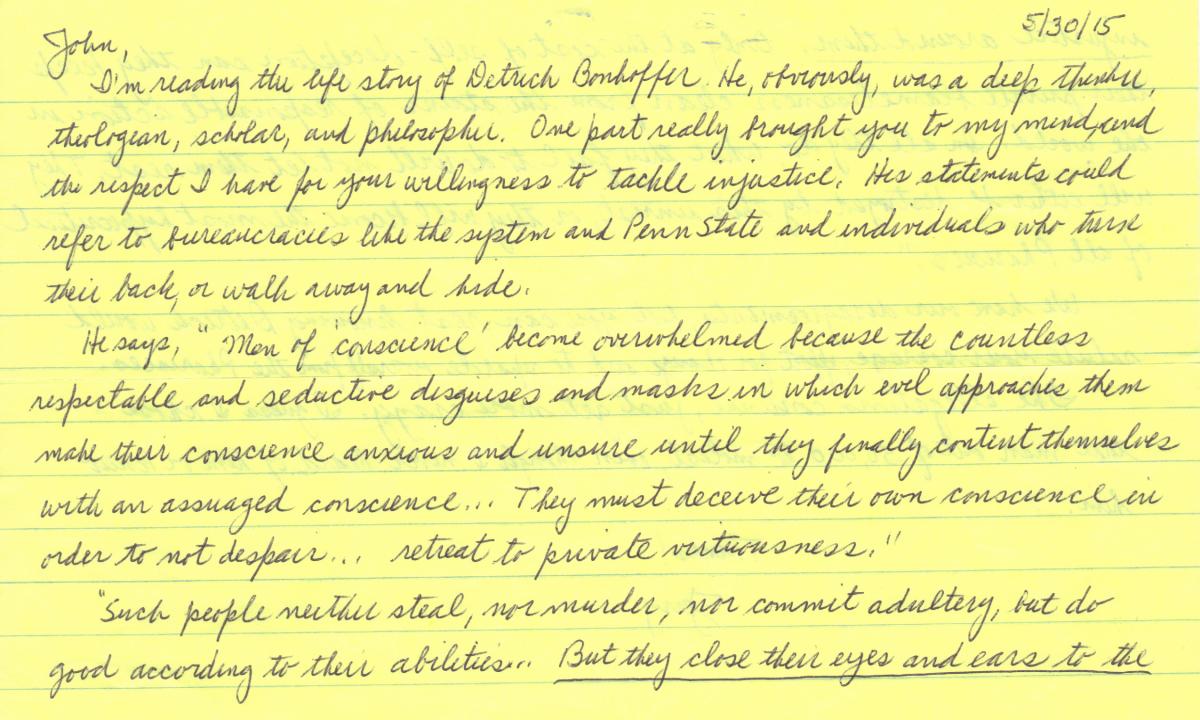 5/30/15
John,
I'm reading the life story of Detrich Bonhoffer. He, obviously, was a deep thinker,
theologean, scholar, and philosopher. One part really brought you to my mind, and
the respect I have for your willingness to tackle injustice. His statements could
refer to bureaucracies like the system and Penn State and individuals who turn
their back, or walk away and hide.
He says, "'Men of conscience' become overwhelmed because the countless
respectable and seductive disguises and masks in which evil approaches them
make their conscience anxious and unsure until they finally content themselves
with an assuaged conscience... They must deceive their own conscience in
order to not despair... retreat to private virtuousness."
"Such people neither steal, nor murder, nor commit adultery, but do
good according to their abilities... But they close their eyes and ears to the